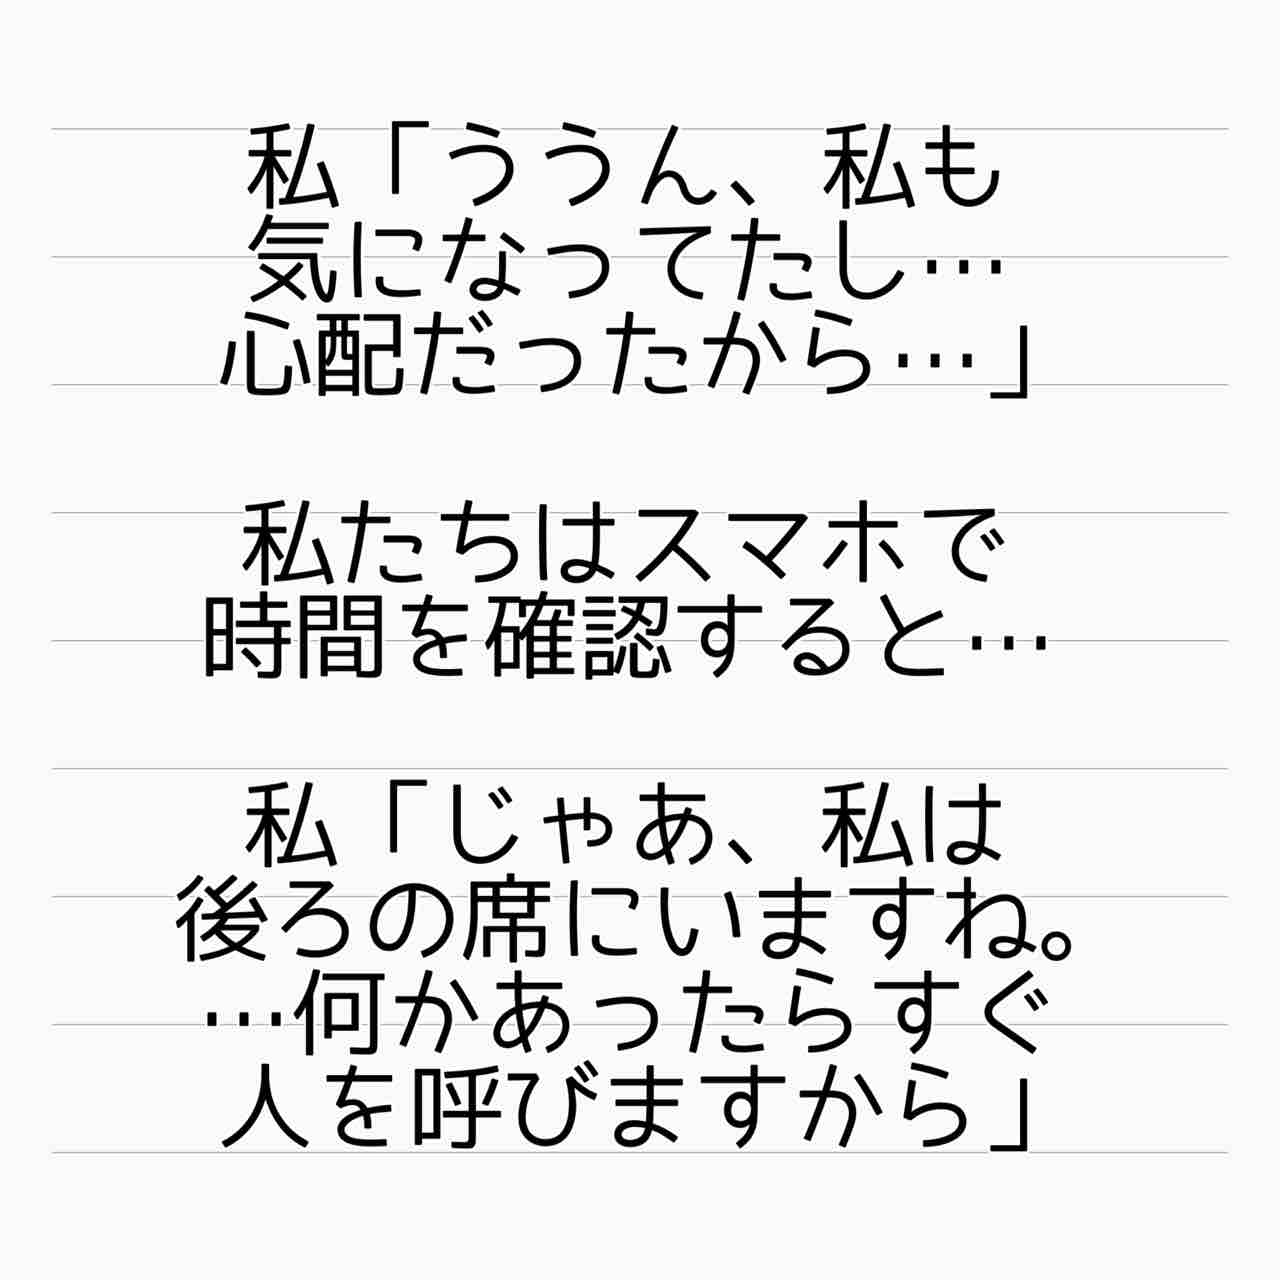 私「ううん、私も
気になってたし…
心配だったから…」
私たちはスマホで
時間を確認すると…
私「じゃあ、私は
後ろの席にいますね。
…何かあったらすぐ
人を呼びますから」